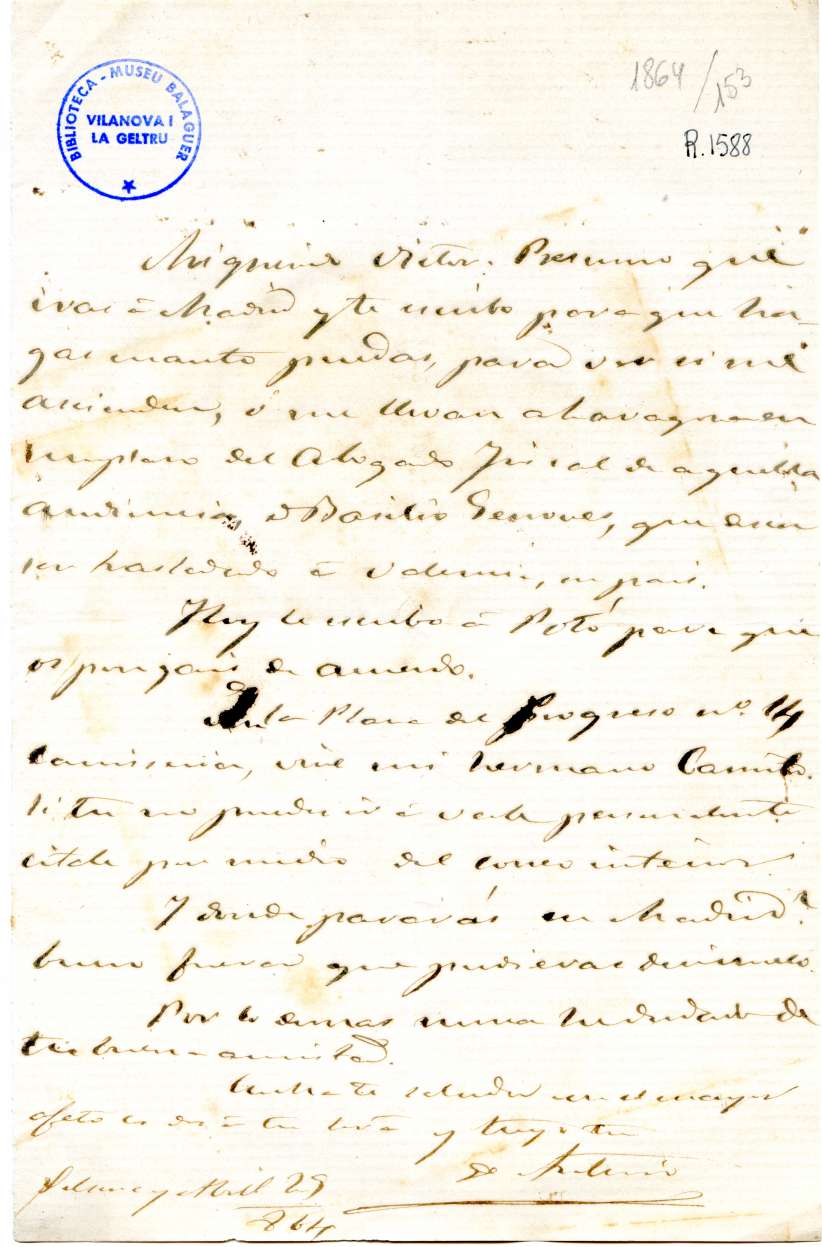 BIBLIOTECA - MUSEU BALAGUER
VILANOVA I
LA GELTRU
1864/153
R.1588
Mi querido Victor. Presumo que
iras á Madrid y te escribo para que ha-
gas cuanto puedas, para ver si me
ascienden, ó me llevan a Zaragoza en
remplazo del Abogado Fiscal de aquella
audiencia, D Basilio Genoves, que
ser trasladado á Valencia, su pais.
Hoy le escribo á para que
os pongais de acuerdo.
En la Plaza del Progreso nº. 14
vive mi hermano Camilo.
Si tu no puedes ir á verle
citale por medio del correo interior.
Y donde pararás en Madrid?
bueno fuera que pudieras decirmelo.
Por lo demas nunca he dudado de
tu buena amistad.
te saluda con el mayor
afeto es de á tu Sra y tuyo tu
Antonio
Abril 29
864